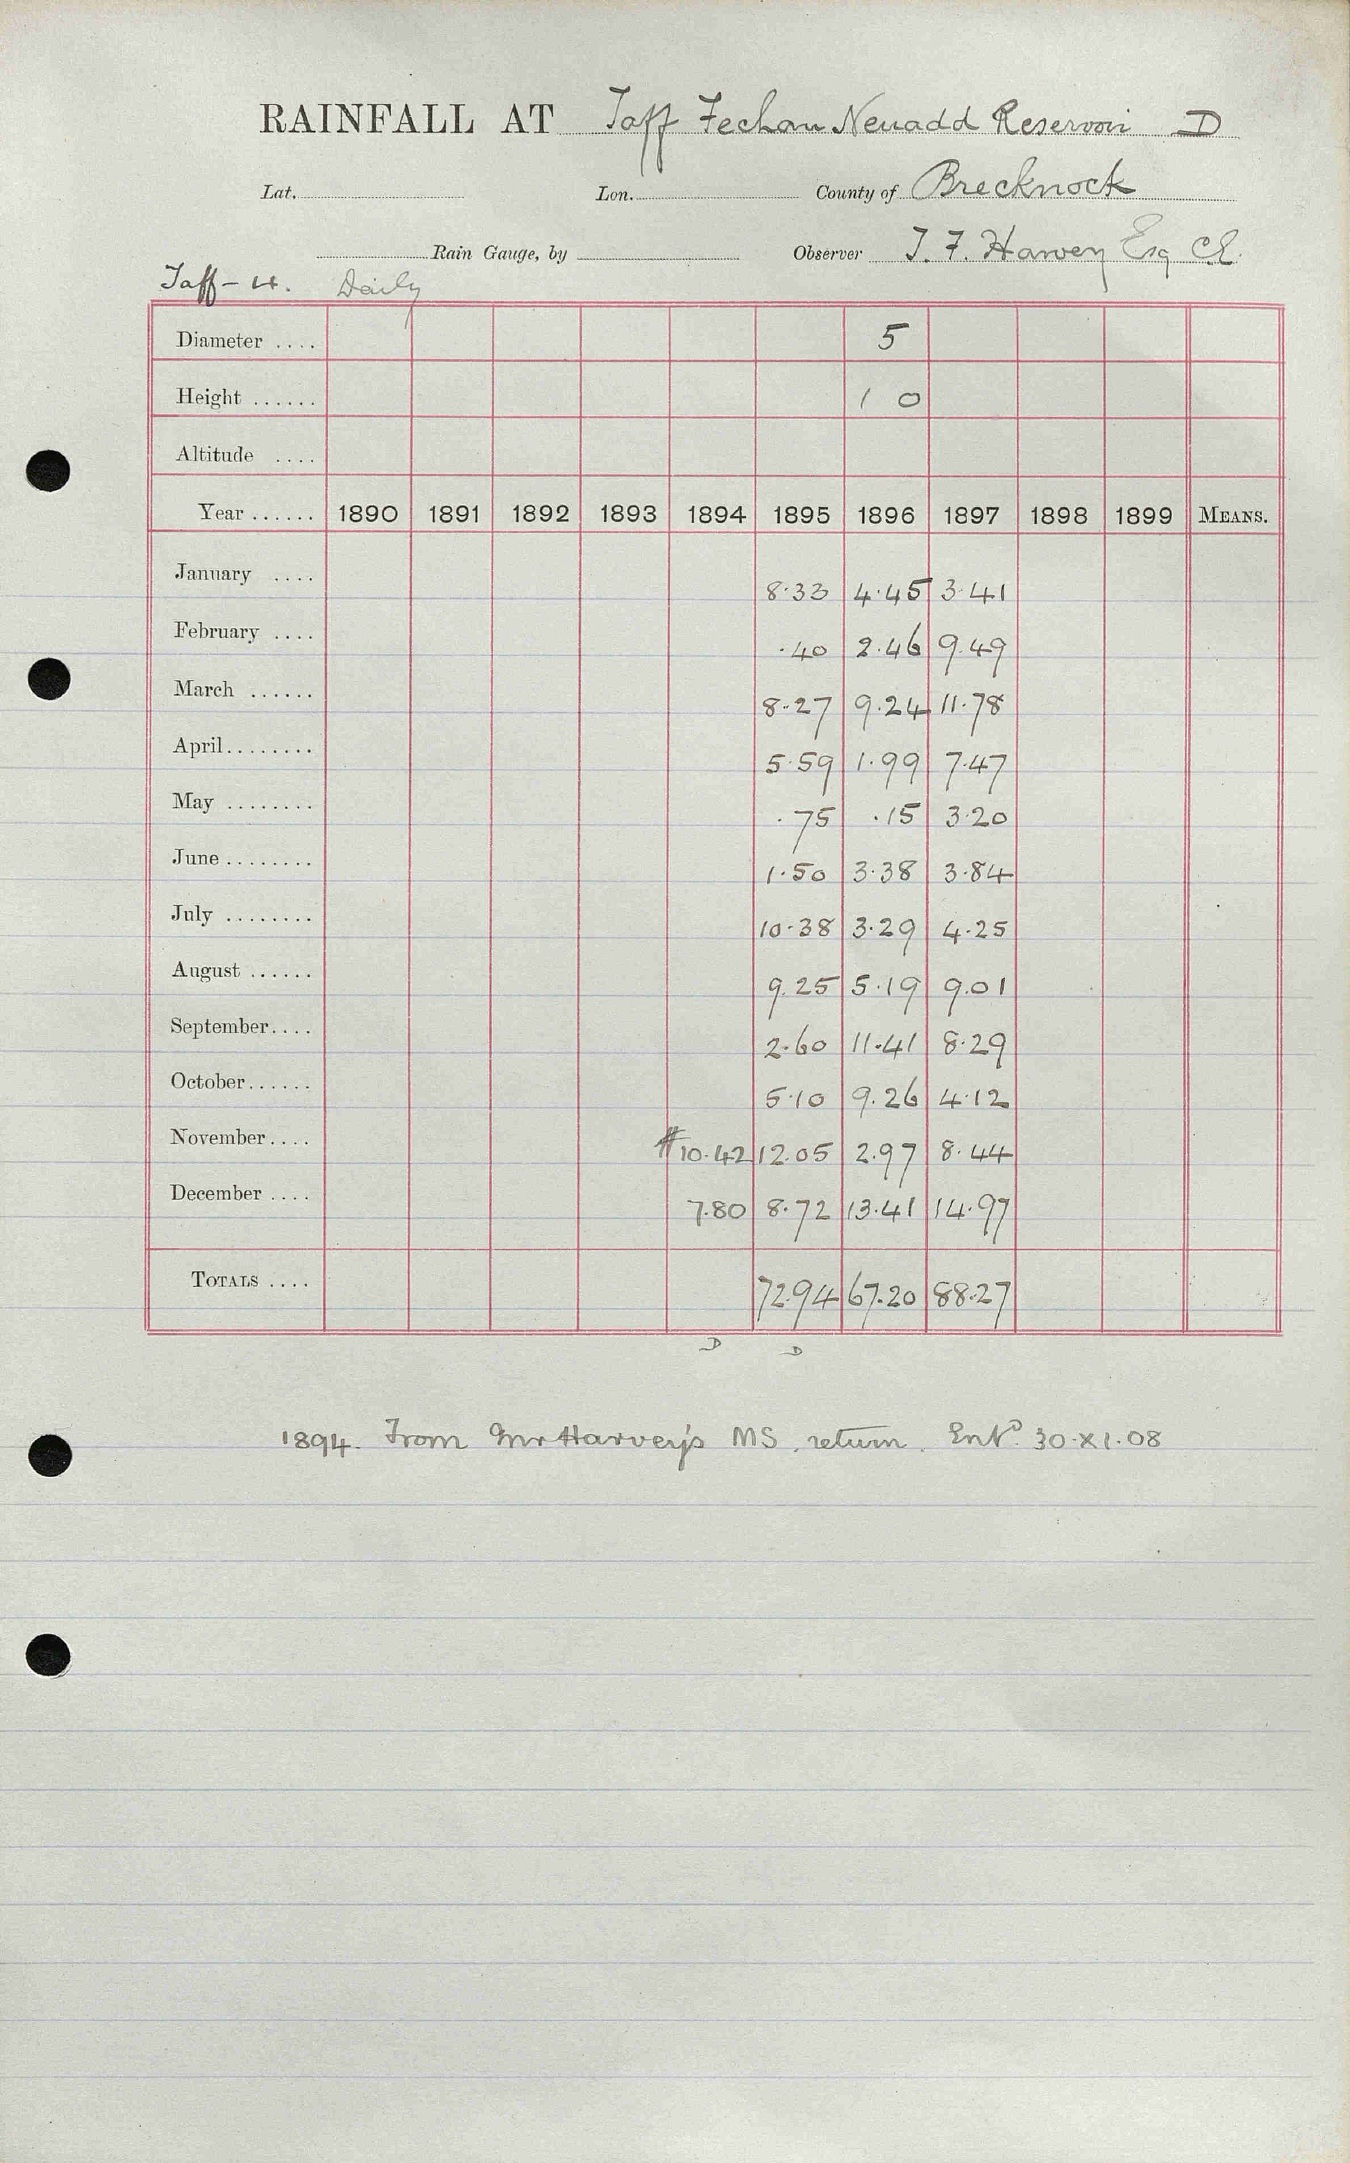 RAINFALL AT Taff Fechan Neuadd Reservoir D
Lat. Lon. County of Brecknock
Rain Gauge, by Observer T. F. Harvey Esq C.E.
Taff - 4. Daily
Diameter .... 5
Height ...... 1 0
Altitude ....
Year ...... 1890 1891 1892 1893 1894 1895 1896 1897 1898 1899 MEANS.
January .... 8.33 4.45 3.41
February .... .40 2.46 9.49
March ...... 8.27 9.24 11.78
April........ 5.59 1.99 7.47
May ........ .75 .15 3.20
June ........ 1.50 3.38 3.84
July ........ 10.38 3.29 4.25
August ...... 9.25 5.19 9.01
September.... 2.60 11.41 8.29
October...... 5.10 9.26 4.12
November.... # 10.42 12.05 2.97 8.44
December .... 7.80 8.72 13.41 14.97
TOTALS .... 72.94 67.20 88.27
D D
1894. From Mr Harvey's MS. return. Entd. 30.XI.08